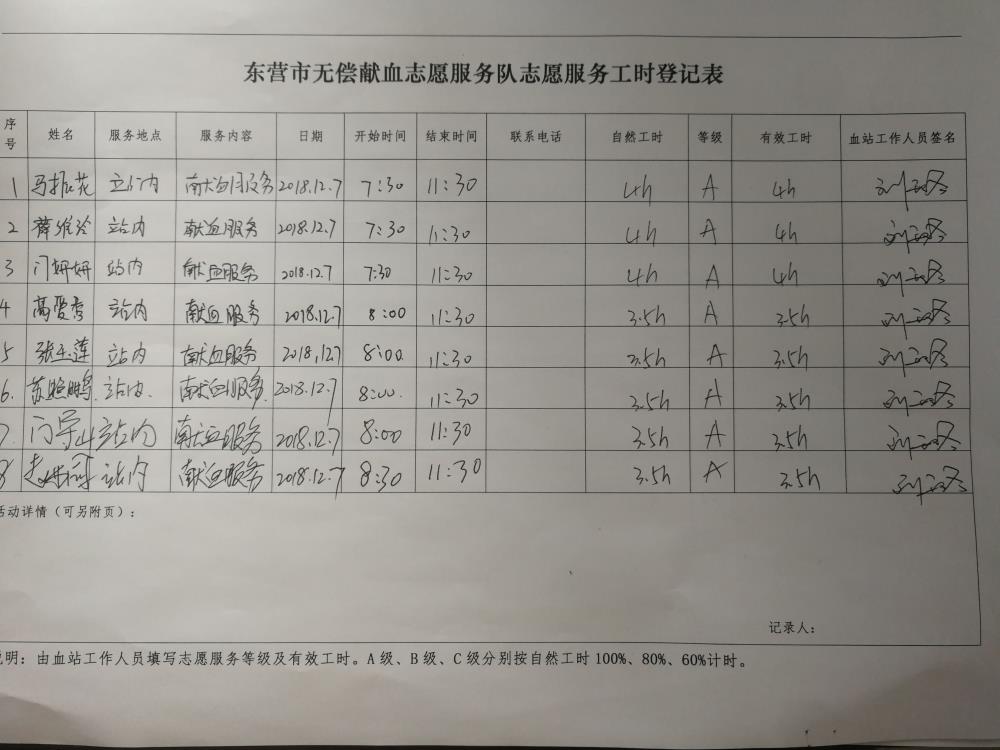 东营市无偿献血志愿服务队志愿服务工时登记表
序号 姓名 服务地点 服务内容 日期 开始时间 结束时间 联系电话 自然工时 等级 有效工时 血站工作人员签名
1 马振花 站内 献血服务 2018.12.7 7:30 11:30 4h A 4h
2 薛维玲 站内 献血服务 2018.12.7 7:30 11:30 4h A 4h
3 门妍妍 站内 献血服务 2018.12.7 7:30 11:30 4h A 4h
4 高爱秀 站内 献血服务 2018.12.7 8:00 11:30 3.5h A 3.5h
5 张玉莲 站内 献血服务 2018.12.7 8:00 11:30 3.5h A 3.5h
6. 苏照鹏 站内. 献血服务. 2018.12.7 8:00. 11:30 3.5h A 3.5h
7. 门字山 站内 献血服务 2018.12.7 8:00 11:30 3.5h A 3.5h
8 站内 献血服务 2018.12.7 8:30 11:30 3.5h A 3.5h
活动详情(可另附页):
记录人:
说明:由血站工作人员填写志愿服务等级及有效工时。A级、B级、C级分别按自然工时100%、80%、60%计时。